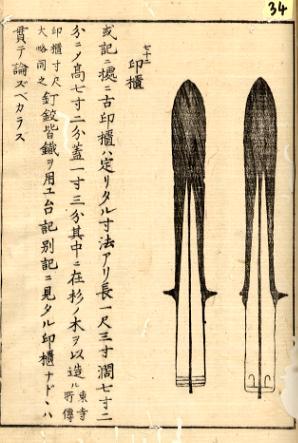 34
七十二
印櫃
或記ニ據ニ古印櫃ハ定リタル寸法アリ長一尺三寸濶七寸二
分ニメ髙七寸二分蓋一寸三分其中ニ在杉ノ木ヲ以造ル東寺所傳
印櫃寸尺大略同之釘鉸皆鐵ヲ用エ台記別記ニ見タル印櫃ナドヽハ
貫テ論ズベカラス